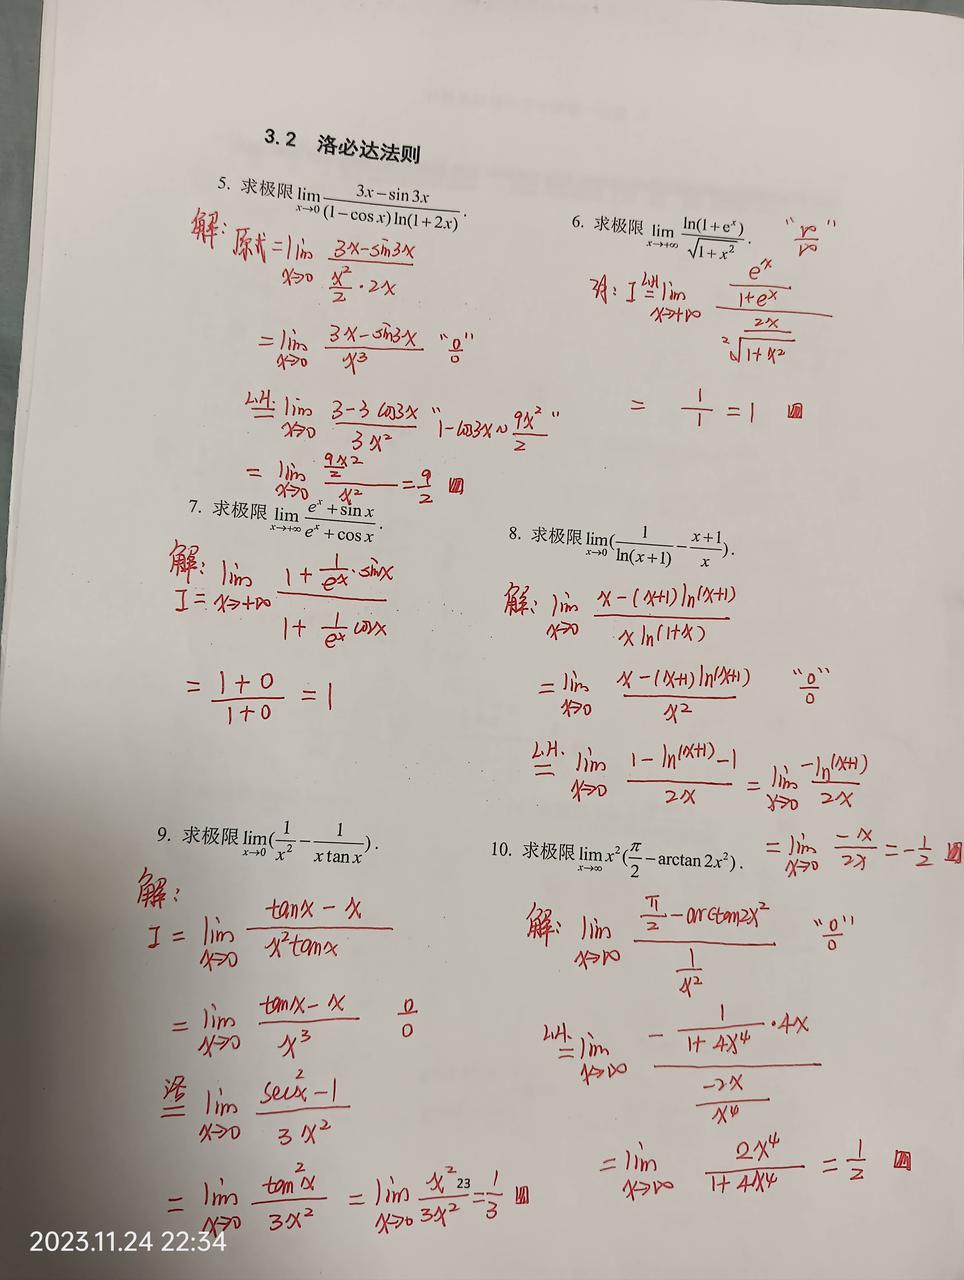 3.2 洛必达法则
5. 求极限 lim_{x→0} (3x−sin3x)/((1−cosx)ln(1+2x)).
解: 原式 = lim_{x→0} (3x−sin3x)/(x²/2 · 2x)
= lim_{x→0} (3x−sin3x)/x³ "0/0"
L.H. = lim_{x→0} (3−3cos3x)/(3x²) "1−cos3x ~ 9x²/2"
= lim_{x→0} (9x²/2)/x² = 9/2
6. 求极限 lim_{x→+∞} ln(1+e^x)/√(1+x²). "∞/∞"
解: I L.H. = lim_{x→+∞} (e^x/(1+e^x))/(2x/(2√(1+x²)))
= 1/1 = 1
7. 求极限 lim_{x→+∞} (e^x+sinx)/(e^x+cosx).
解:
I = lim_{x→+∞} (1+(1/e^x)·sinx)/(1+(1/e^x)cosx)
= (1+0)/(1+0) = 1
8. 求极限 lim_{x→0} (1/ln(x+1) − (x+1)/x).
解: lim_{x→0} (x−(x+1)ln(x+1))/(x ln(1+x))
= lim_{x→0} (x−(x+1)ln(x+1))/x² "0/0"
L.H. = lim_{x→0} (1−ln(x+1)−1)/(2x) = lim_{x→0} (−ln(x+1))/(2x)
= lim_{x→0} (−x)/(2x) = −1/2
9. 求极限 lim_{x→0} (1/x² − 1/(x tanx)).
解:
I = lim_{x→0} (tanx−x)/(x²tanx)
= lim_{x→0} (tanx−x)/x³ 0/0
洛 = lim_{x→0} (sec²x−1)/(3x²)
= lim_{x→0} tan²x/(3x²) = lim_{x→0} x²/(3x²) = 1/3
10. 求极限 lim_{x→∞} x²(π/2 − arctan2x²).
解: lim_{x→∞} (π/2−arctan2x²)/(1/x²) "0/0"
L.H. = lim_{x→∞} (−(1/(1+4x⁴))·4x)/(−2x/x⁴)
= lim_{x→∞} 2x⁴/(1+4x⁴) = 1/2
23
2023.11.24 22:34